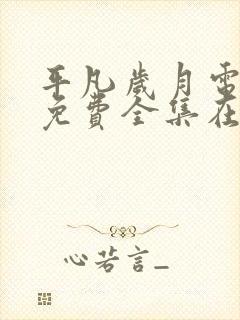 平凡岁月電
免費全集在
心若言_